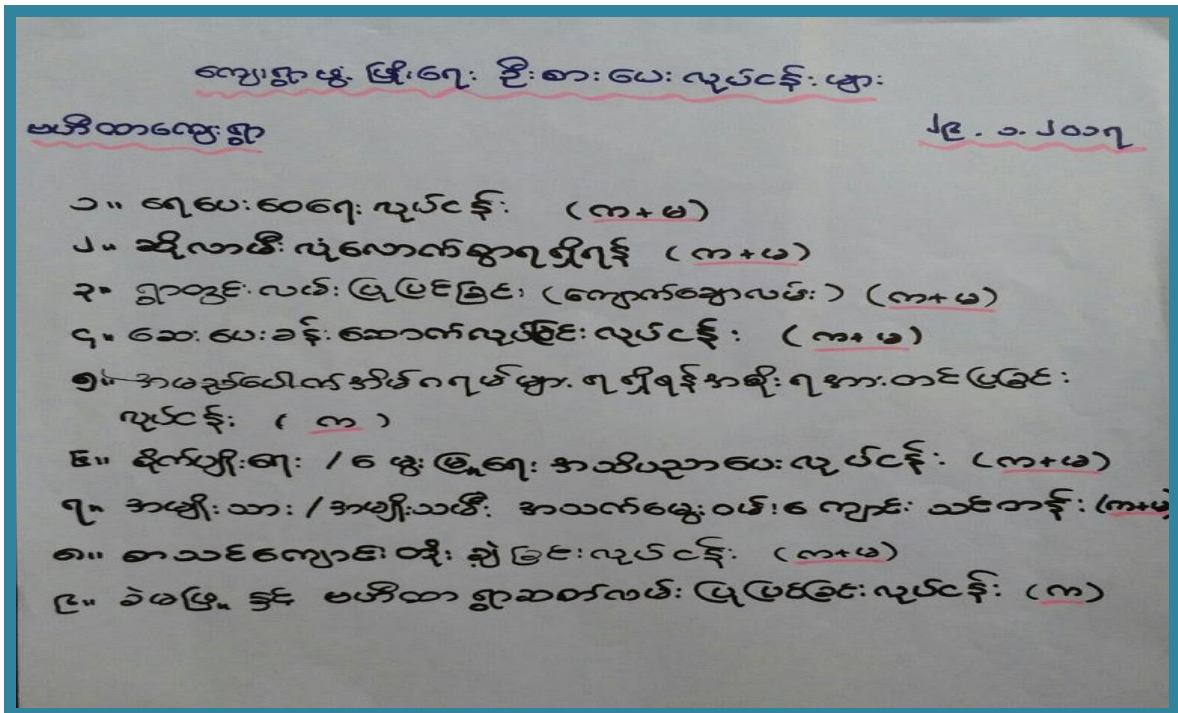 ကျေးရွာဖွံ့ဖြိုးရေး ဦးစားပေးလုပ်ငန်းများ
မဟီထာကျေးရွာ ၂၉.၁.၂၀၁၇
၁။ ရေပေးဝေရေးလုပ်ငန်း (က+မ)
၂။ ဆိုလာမီးလုံလောက်စွာရရှိရန် (က+မ)
၃။ ရွာတွင်းလမ်းပြုပြင်ခြင်း (ကျောက်ချောလမ်း) (က+မ)
၄။ ဆေးပေးခန်းဆောက်လုပ်ခြင်းလုပ်ငန်း (က+မ)
၅။ အမည်ပေါက်အိမ်ဂရမ်များ ရရှိရန်အစိုးရအားတင်ပြခြင်း
လုပ်ငန်း (က)
၆။ စိုက်ပျိုးရေး/မွေးမြူရေး အသိပညာပေးလုပ်ငန်း (က+မ)
၇။ အမျိုးသား/အမျိုးသမီး အသက်မွေးဝမ်းကျောင်း သင်တန်း (က+မ)
၈။ စာသင်ကျောင်းတိုးချဲ့ခြင်းလုပ်ငန်း (က+မ)
၉။ ခဲမဖြူ နှင့် မဟီထာ ရွာဆက်လမ်း ပြုပြင်ခြင်းလုပ်ငန်း (က)